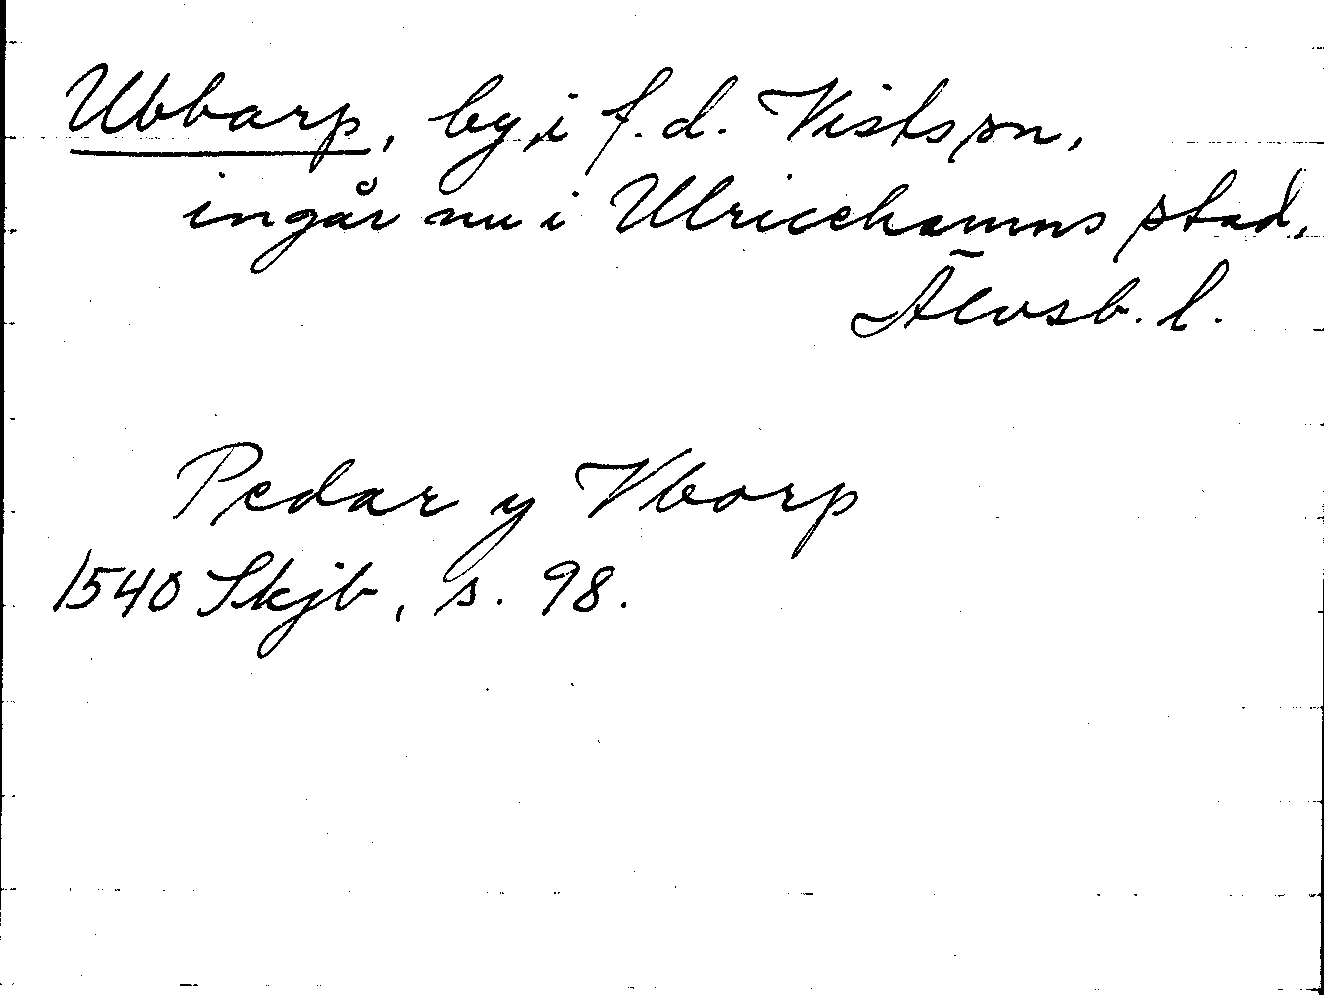 Ubbarp, by i f.d. Vists sn,
ingår nu i Ulricehamns stad,
Älvsb. l.
Pedar y Vborp
1540 Skjb, s. 98.